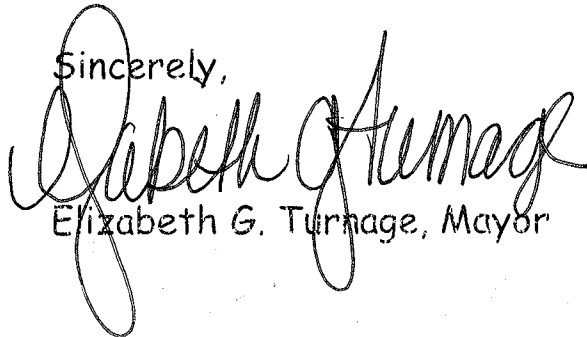 Sincerely,
Elizabeth G Turnage
Elizabeth G. Turnage, Mayor